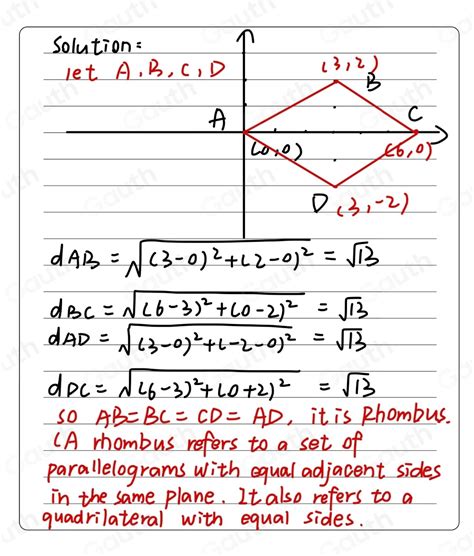 Solution:
let A, B, C, D
(3,2)
B
A
C
(0,0)
(6,0)
D (3,-2)
dAB = √(3-0)²+(2-0)² = √13
dBC = √(6-3)²+(0-2)² = √13
dAD = √(3-0)²+(-2-0)² = √13
dDC = √(6-3)²+(0+2)² = √13
so AB=BC=CD=AD, it is Rhombus.
(A rhombus refers to a set of
parallelograms with equal adjacent sides
in the same plane. It also refers to a
quadrilateral with equal sides.
Gauth